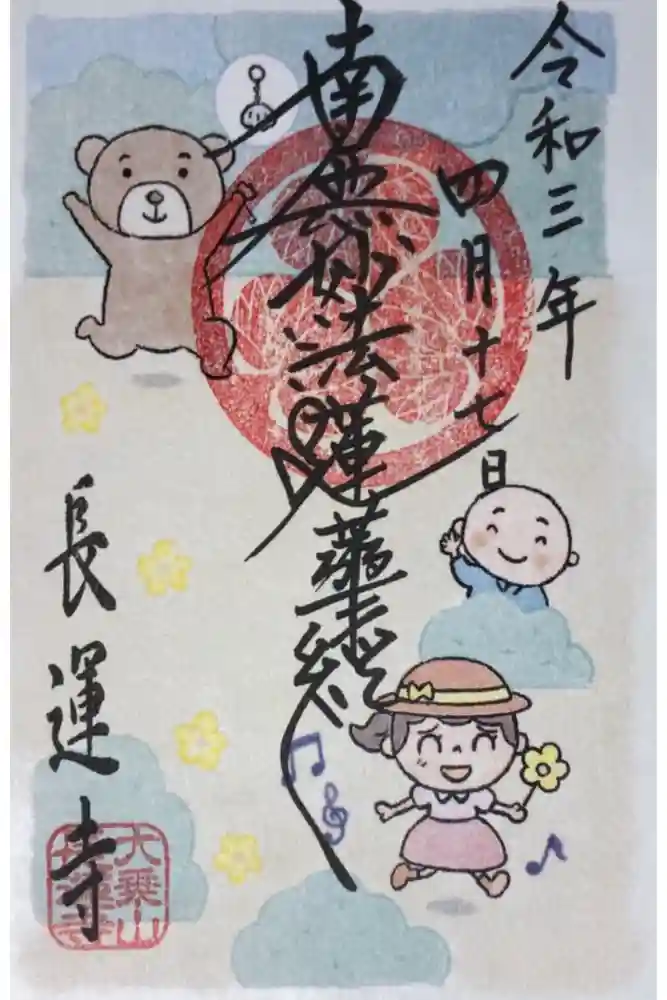 令和三年
四月十七日
南無妙法蓮華経
長運寺
大乗山
長運寺